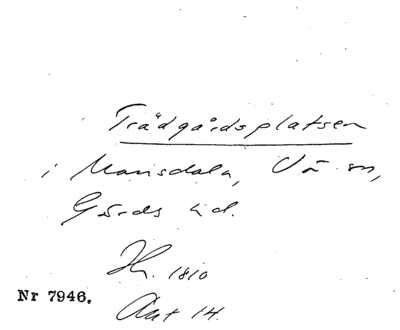 Trädgårdsplatsen
i Marisdala, Vä sn,
Gärds hd.
Hr. 1810
Nr 7946.
Akt 14.